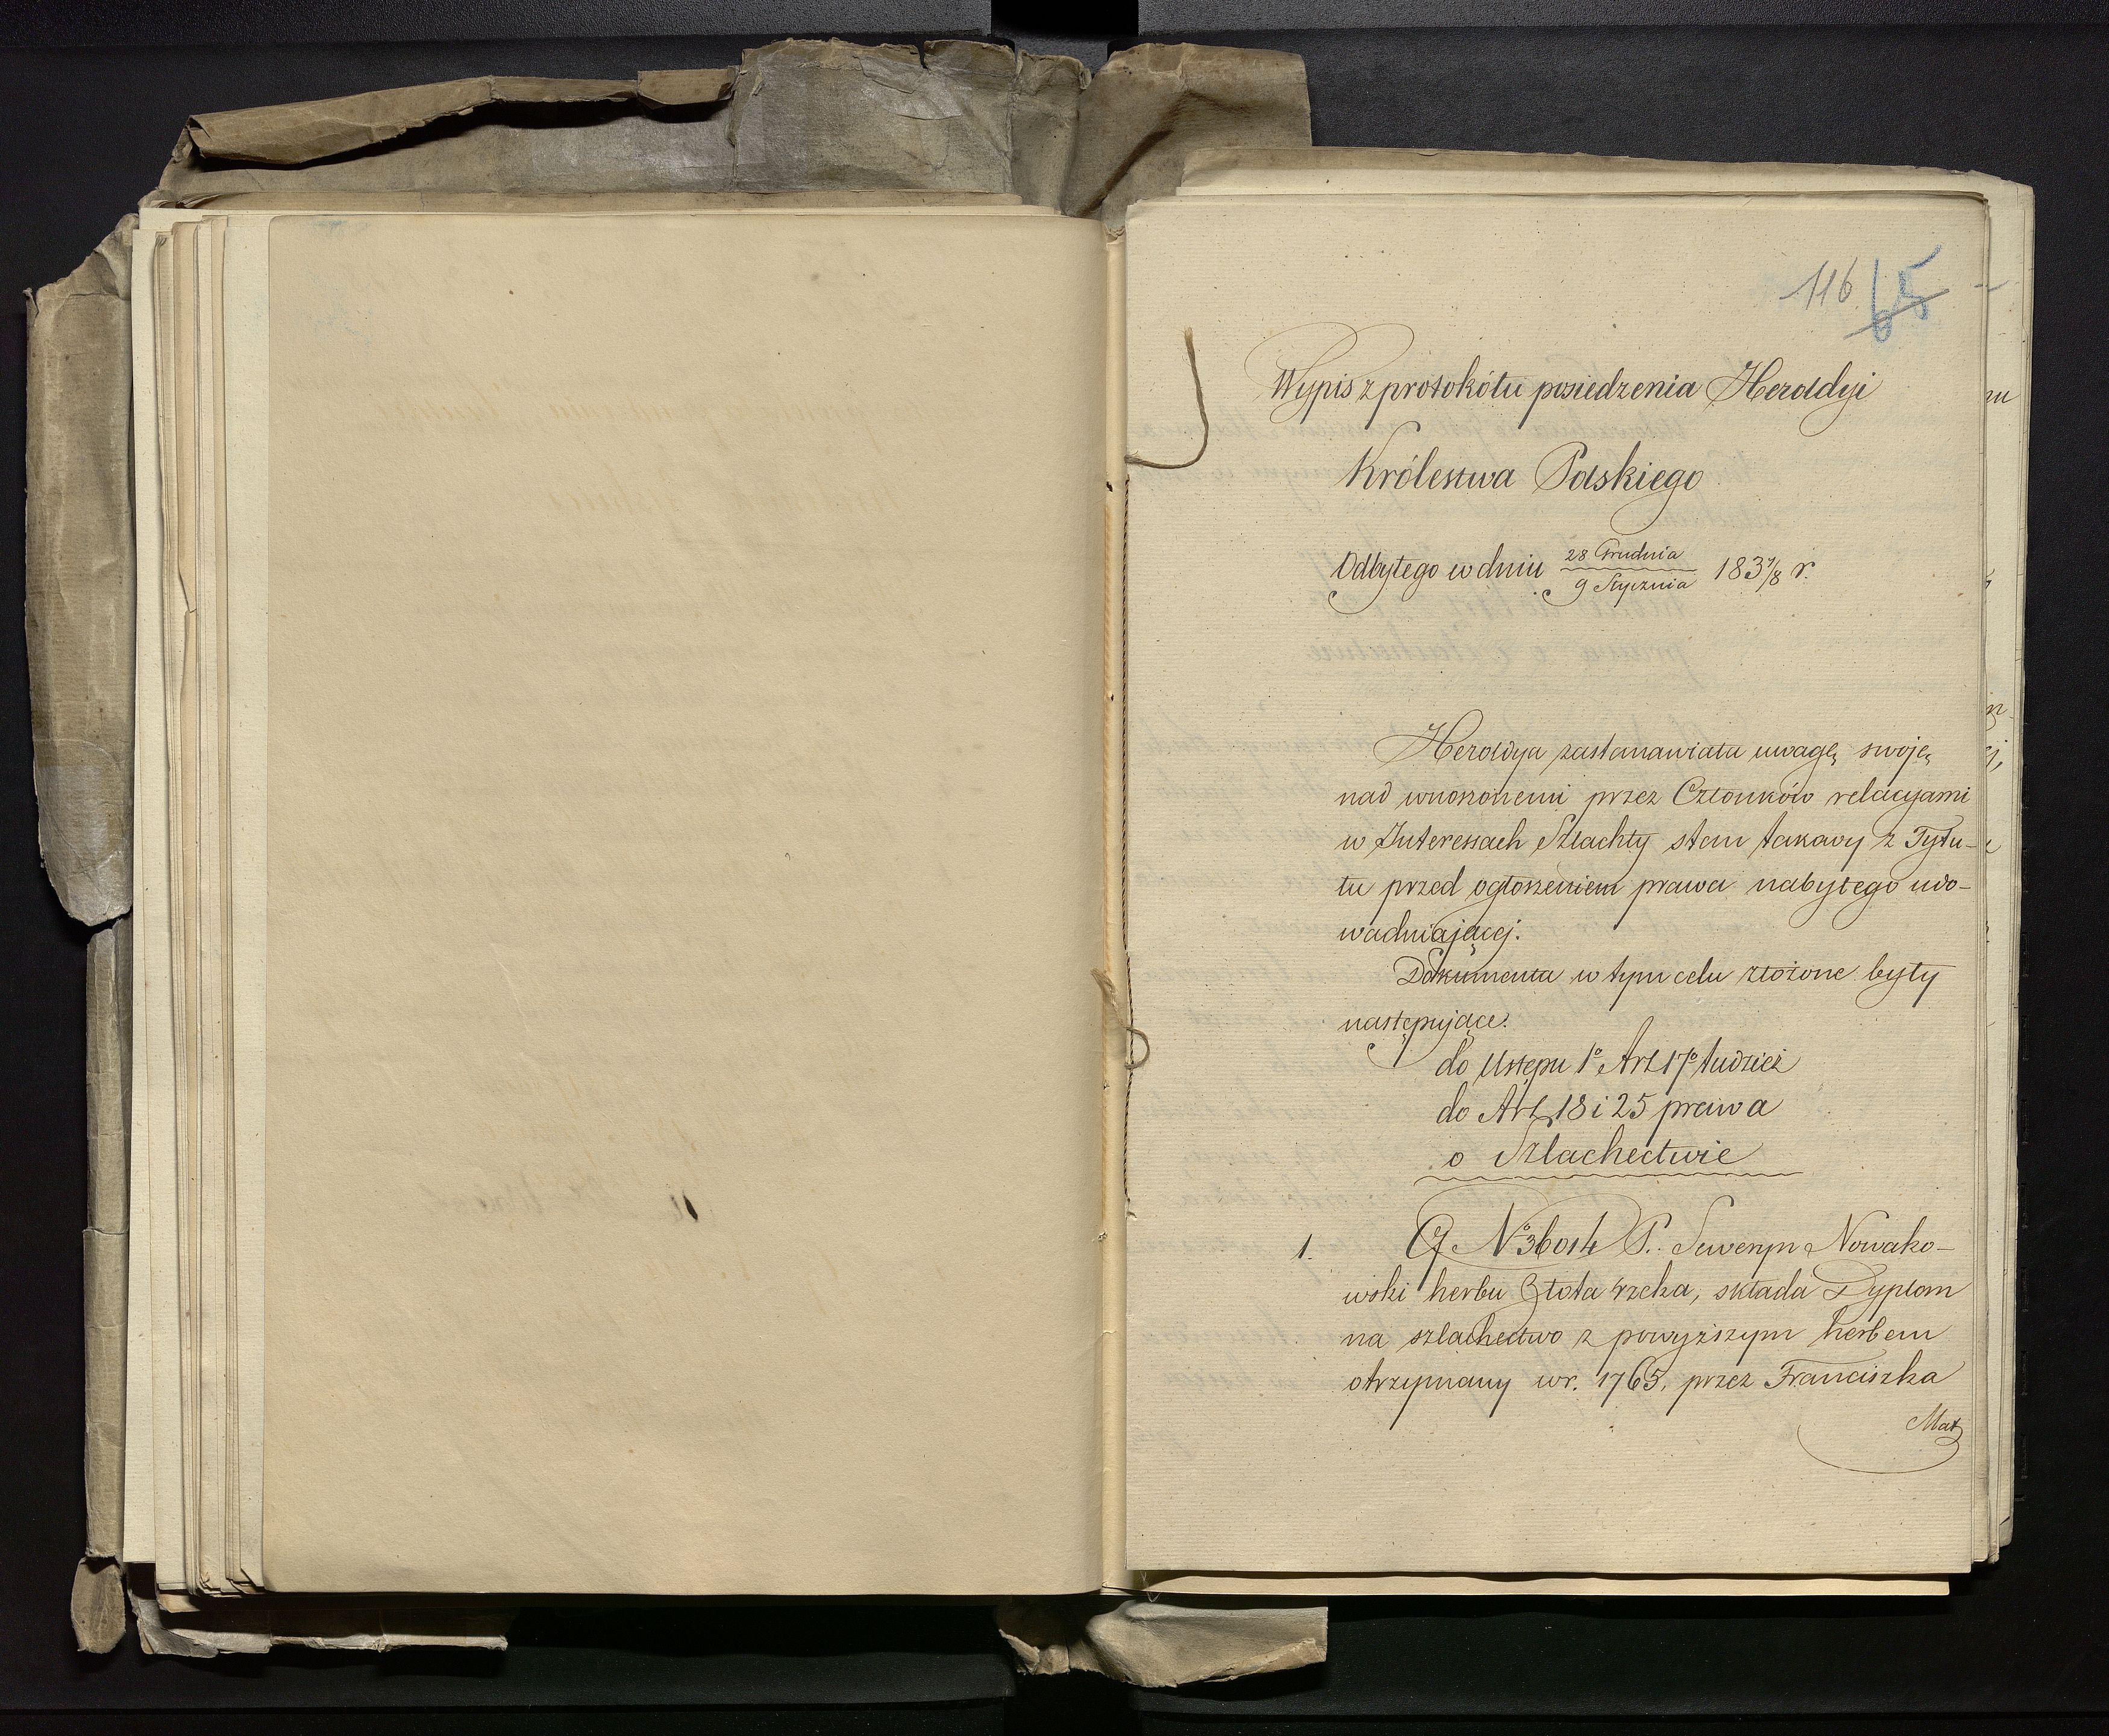 116 65
Wypis z protokółu posiedzenia Heroldyi
Królestwa Polskiego
Odbytego w dniu 28 Grudnia / 9 Stycznia 183 7/8 r.
Heroldya zastanawiała uwagę swoję
nad wnoszonemi przez Członków relacyami
w Interessach Szlachty stan takowy z Tytu-
łu przed ogłoszeniem prawa nabytego udo-
wadniającej.
Dokumenta w tym celu złożone były
następujące.
do Ustępu 1º Art 17º tudzież
do Art. 18 i 25 prawa
o Szlachectwie
1. Nº 36014 P. Seweryn Nowako-
wski herbu Złota rzeka, składa Dyplom
na szlachectwo z powyższym herbem
otrzymany w r. 1765. przez Franciszka
Mat